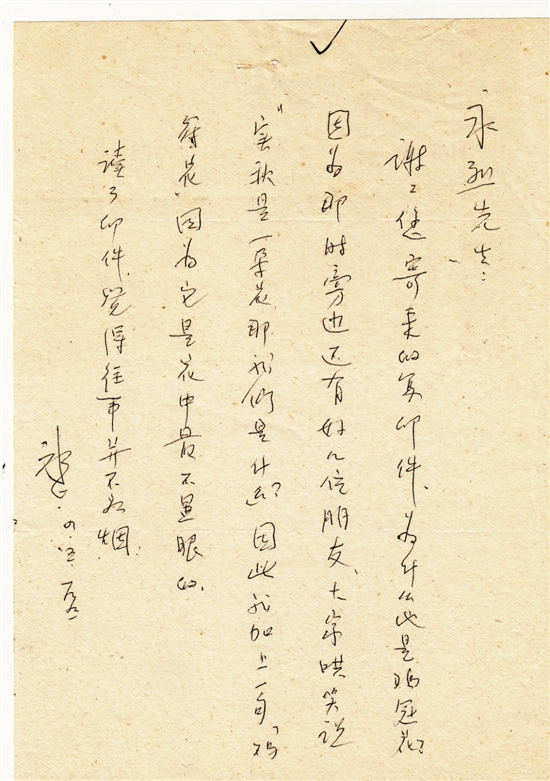 永烈先生：
谢谢您寄来的复印件，为什么比是鸡冠花？
因为那时旁边还有好几位朋友，大家哄笑说
“实秋是一朵花，那我们是什么？”因此我加上一句，“鸡
冠花”因为它是花中最不显眼的。
读了印件，觉得往事并不如烟。